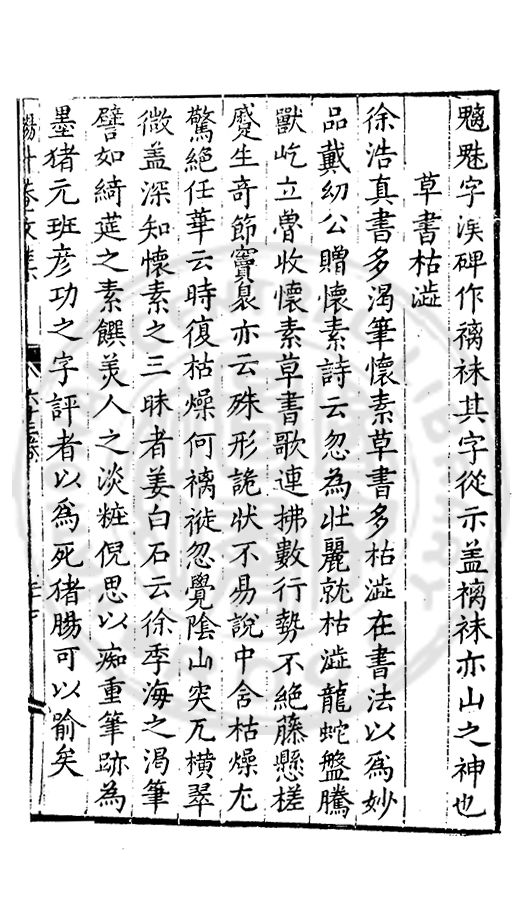 魑魅字漢碑作𥜻袜其字從示盖𥜻袜亦山之神也
草書枯澁
徐浩真書多渴筆懷素草書多枯澁在書法以為妙
品戴幼公贈懷素詩云忽為壯麗就枯澁龍蛇盤騰
獸屹立魯收懷素草書歌連拂數行勢不絕藤懸槎
蹙生奇節竇臮亦云殊形詭狀不易說中含枯燥尢
驚絕任華云時復枯燥何褵褷忽覺陰山突兀橫翠
微盖深知懷素之三昧者姜白石云徐季海之渴筆
譬如綺莚之素饌美人之淡粧倪思以痴重筆跡為
墨猪元班彥功之字評者以為死猪腸可以喻矣